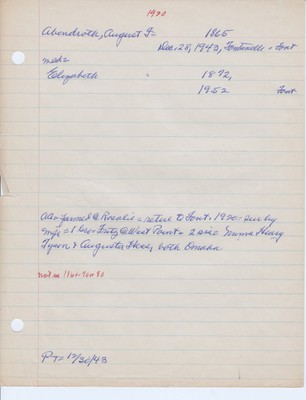 1920
Abendroth, August F= 1865
Dec. 28, 1943, Fontenelle = Font
Elizabeth 1872,
1952 Font
AA= farmed @ Rosalie = retire to Font. 1920 = sur by
wife = 1 bro= Fritz @ West Point = 2 sis= Emma Henry
Tyson & Augusta Haas, both Omaha
not on 1165-70 or 80
PT= 12/30/43